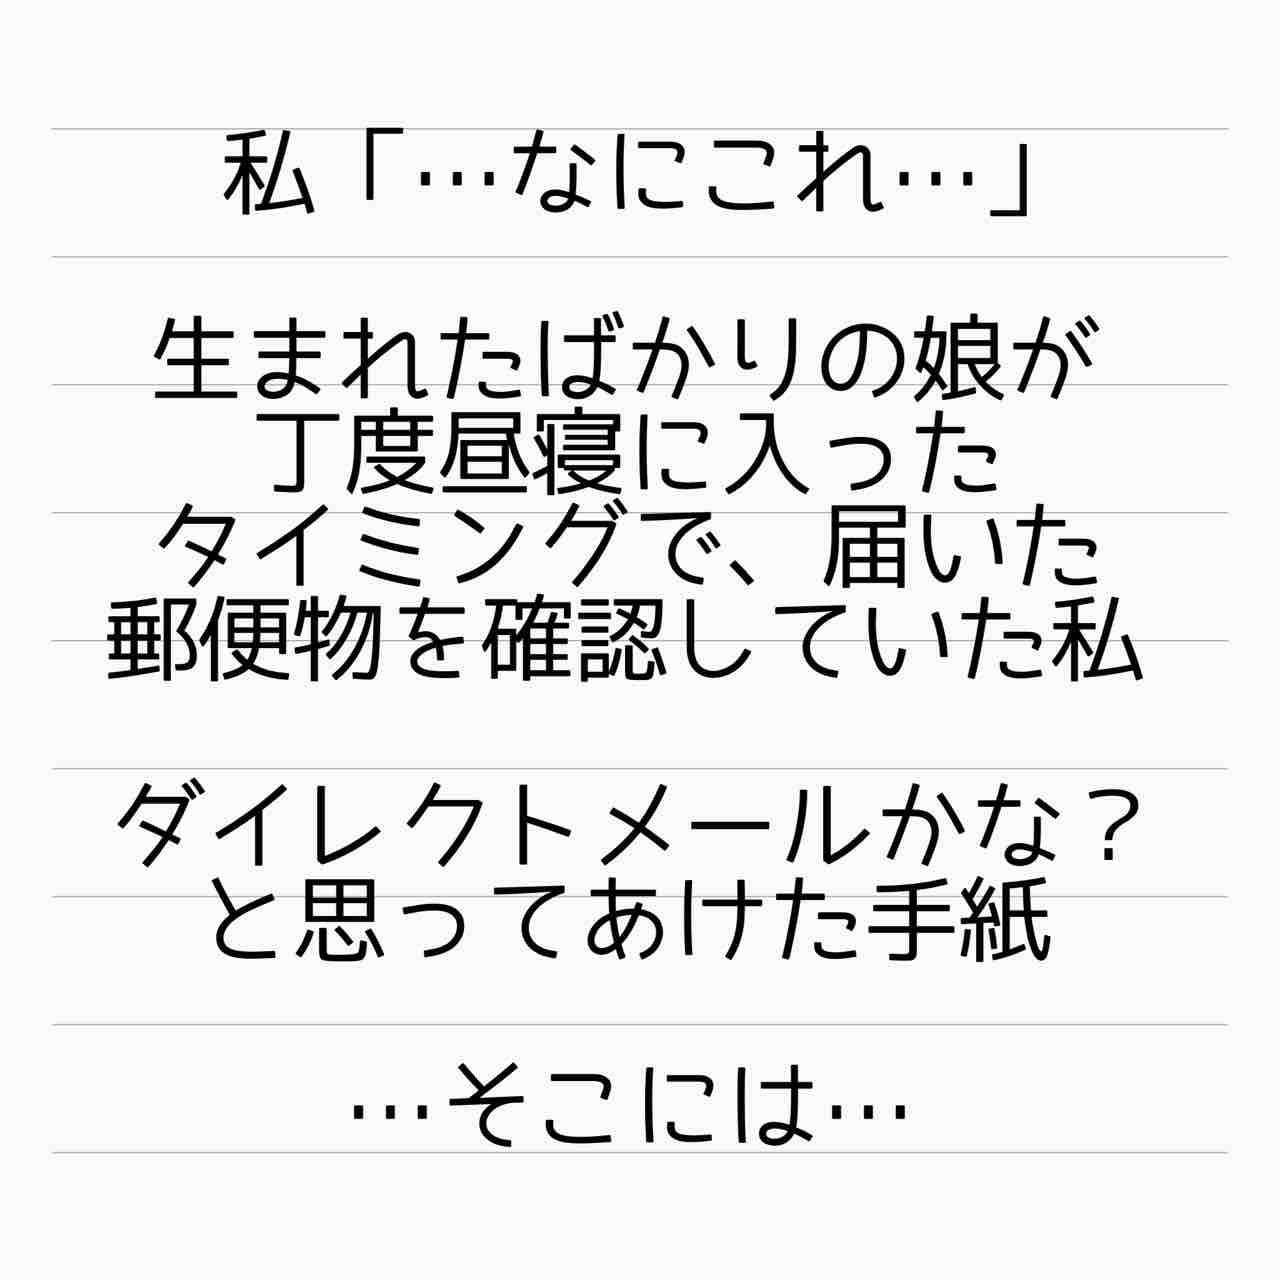 私「…なにこれ…」
生まれたばかりの娘が
丁度昼寝に入った
タイミングで、届いた
郵便物を確認していた私
ダイレクトメールかな？
と思ってあけた手紙
…そこには…